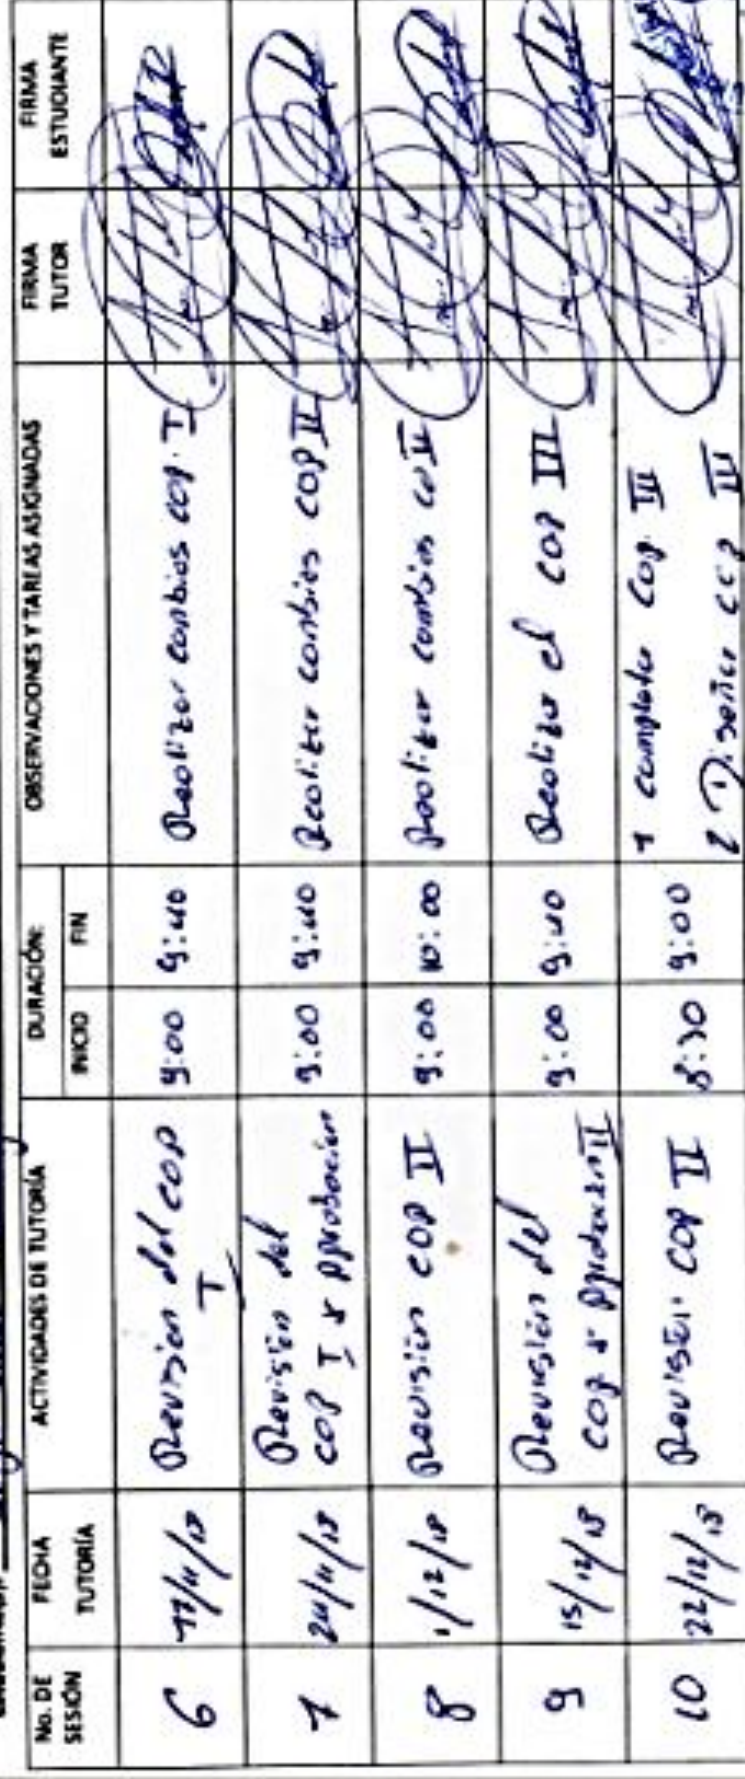 No. DE SESIÓN
FECHA TUTORÍA
ACTIVIDADES DE TUTORÍA
DURACIÓN:
INICIO
FIN
OBSERVACIONES Y TAREAS ASIGNADAS
FIRMA TUTOR
FIRMA ESTUDIANTE
6
17/11/18
Revision del cap
I
9:00
9:40
Realizar cambios cap. I
7
24/11/18
Revisión del
cap I y Aprobacion
9:00
9:40
Realizar cambios cap II
8
1/12/18
Revisión cap II
9:00
10:00
Realizar cambios cap II
9
15/12/18
Revisión del
cap y Aprobación II
9:00
9:40
Realizar el cap III
10
22/12/18
Revisión cap II
8:30
9:00
1 completar cap. III
2 Diseñar cap III